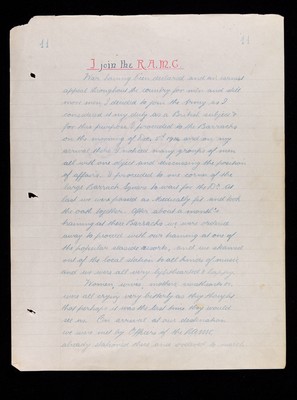 11 11
I join the R.A.M.C.
War having been declared and an urgent
appeal throughout the country for men and still
more men, I decided to join the Army as I
considered it my duty as a British subject &
for this purpose I proceeded to the Barracks
on the morning of Nov.
arrival there I noticed many groups of men
all with one object and discussing the position
of affairs. I proceeded to one corner of the
large Barrack Square to wait for the Dr. At
last we were passed as medically fit and took
the oath together. After about a month's
training at these Barracks we were ordered
away to proceed with our training at one of
the popular seaside resorts, and we steamed
out of the local station to all kinds of music
and we were all very light hearted & happy.
Women, wives, mothers sweethearts
were all crying very bitterly as they thought
that perhaps it was the last time they would
see us. On arrival at our destination
we were met by Officers of the RAMC
already stationed there and ordered to march